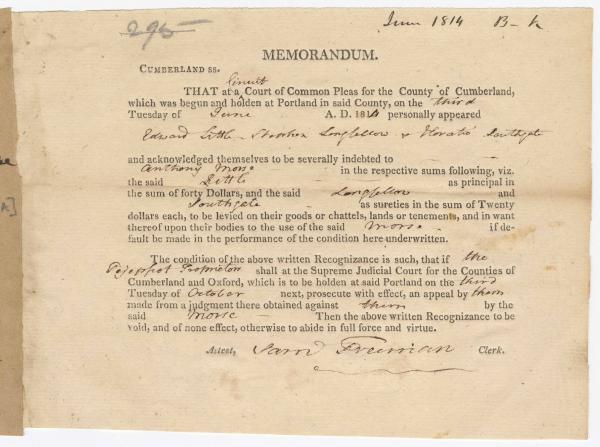 295
June 1814 B-k
MEMORANDUM.
CUMBERLAND SS.
Circuit
THAT at a ^ Court of Common Pleas for the County of Cumberland,
which was begun and holden at Portland in said County, on the third
Tuesday of June A. D. 1814 personally appeared
Edward Little - Stephen Longfellow & Horatio Southgate
and acknowledged themselves to be severally indebted to
Anthony Morse in the respective sums following, viz.
the said Little as principal in
the sum of forty Dollars, and the said Longfellow and
Southgate as sureties in the sum of Twenty
dollars each, to be levied on their goods or chattels, lands or tenements, and in want
thereof upon their bodies to the use of the said Morse if de-
fault be made in the performance of the condition here underwritten.
The condition of the above written Recognizance is such, that if the
Pejepscot Proprietors shall at the Supreme Judicial Court for the Counties of
Cumberland and Oxford, which is to be holden at said Portland on the third
Tuesday of October next, prosecute with effect, an appeal by them
made from a judgment there obtained against them by the
said Morse Then the above written Recognizance to be
void, and of none effect, otherwise to abide in full force and virtue.
Attest, Saml Freeman Clerk.